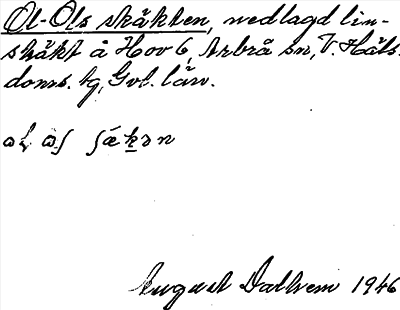 Ol-Ols skäkten, nedlagd lin-
skäkt å Hov 6, Arbrå sn, V. Häls.
doms. tg, Gvl. län.
August Dalhem 1946